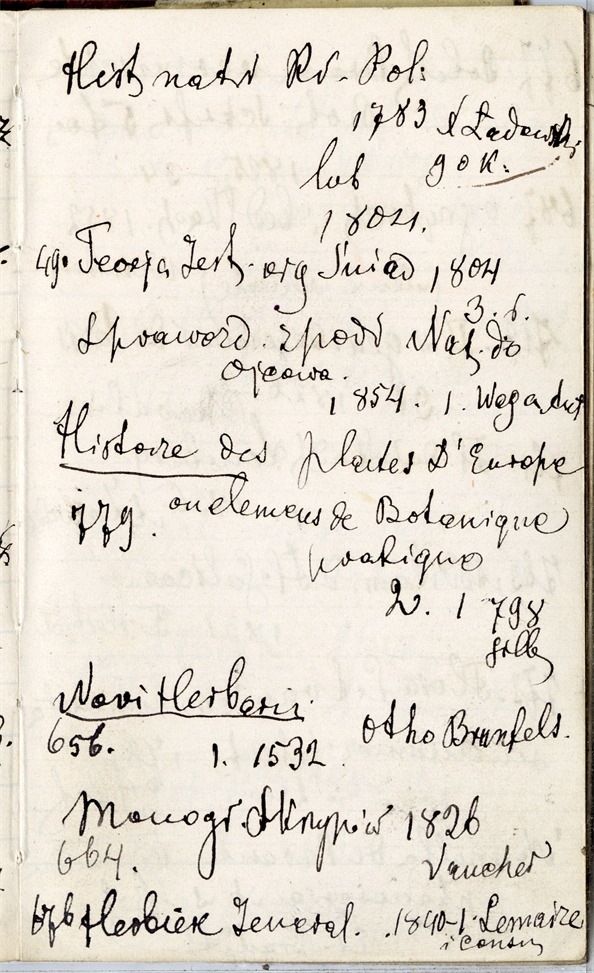 Hist natr Kr. Pol:
1783 X Ładowski
lub gok.
1804.
49. Teorja Jest. org Śniad 1804
3. t.
Sprawozd. z podr Nat. do
Ojcowa.
1854. 1. Waga Ant
Histoire des plantes D'Europe
779. ou elemens de Botanique
pratique
2. 1798
Gilb
Novi Herbarii.
656. 1. 1532 Otho Brunfels.
Monogr. Skrzypów 1826
664. Vaucher
676 Herbier General. 1840-1. Lemaire